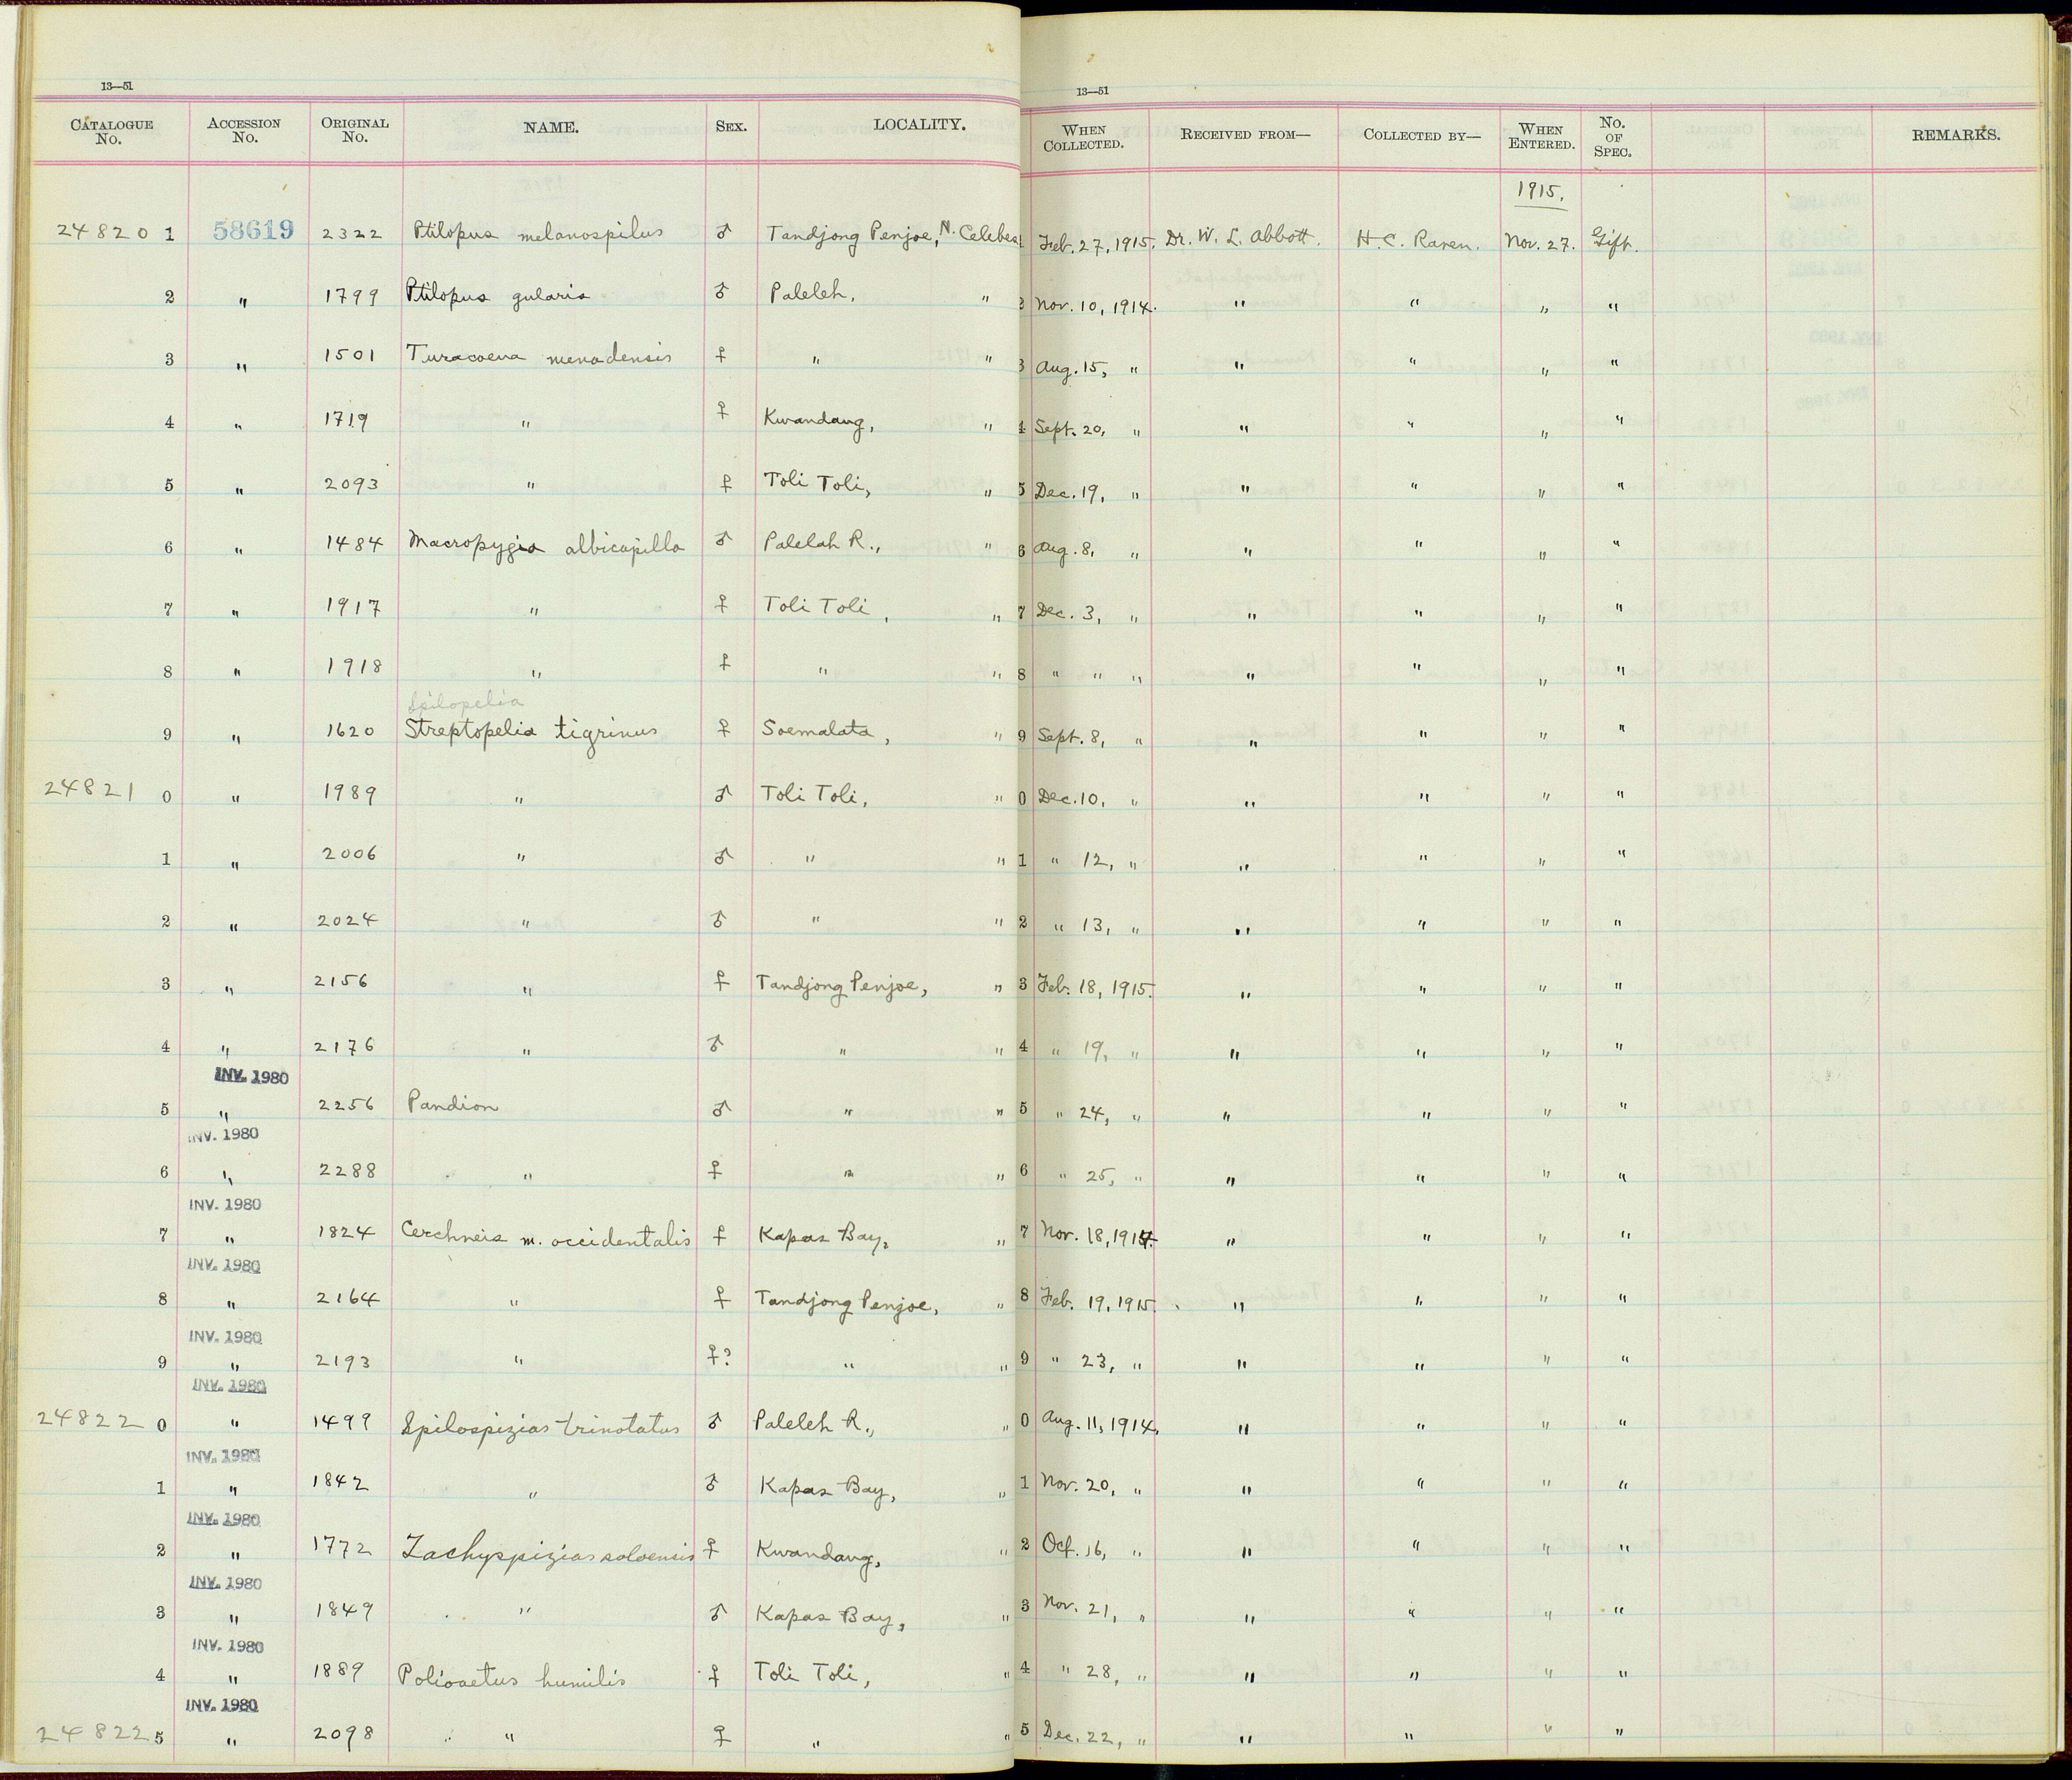 13—51
CATALOGUE No. ACCESSION No. ORIGINAL No. NAME. SEX. LOCALITY. WHEN COLLECTED. RECEIVED FROM— COLLECTED BY— WHEN ENTERED. No. OF SPEC. REMARKS.
13—51
1915.
24820 1 58619 2322 Ptilopus melanospilus ♂ Tandjong Penjoe, N. Celebes 1 Feb. 27, 1915. Dr. W. L. Abbott. H. C. Raven. Nov. 27. Gift.
2 " 1799 Ptilopus gularis ♂ Paleleh, " 2 Nov. 10, 1914. " " " "
3 " 1501 Turacoena menadensis ♀ " " 3 Aug. 15, " " " " "
4 " 1719 " ♀ Kwandang, " 4 Sept. 20, " " " " "
5 " 2093 " ♀ Toli Toli, " 5 Dec. 19, " " " " "
6 " 1484 Macropygia albicapilla ♂ Palelah R., " 6 Aug. 8, " " " " "
7 " 1917 " ♀ Toli Toli, " 7 Dec. 3, " " " " "
8 " 1918 " ♀ " " 8 " " " " " " "
Spilopelia
9 " 1620 Streptopelia tigrinus ♀ Soemalata, " 9 Sept. 8, " " " " "
24821 0 " 1989 " ♂ Toli Toli, " 0 Dec. 10, " " " " "
1 " 2006 " ♂ " " 1 " 12, " " " " "
2 " 2024 " ♂ " " 2 " 13, " " " " "
3 " 2156 " ♀ Tandjong Penjoe, " 3 Feb. 18, 1915. " " " "
4 " 2176 " ♂ " " 4 " 19, " " " " "
INV. 1980
5 " 2256 Pandion ♂ " " 5 " 24, " " " " "
INV. 1980
6 " 2288 " ♀ " " 6 " 25, " " " " "
INV. 1980
7 " 1824 Cerchneis m. occidentalis ♀ Kapas Bay, " 7 Nov. 18, 1914. " " " "
INV. 1980
8 " 2164 " ♀ Tandjong Penjoe, " 8 Feb. 19, 1915. " " " "
INV. 1980
9 " 2193 " ♀? " " 9 " 23, " " " " "
INV. 1980
24822 0 " 1499 Spilospizias trinotatus ♂ Paleleh R., " 0 Aug. 11, 1914. " " " "
INV. 1980
1 " 1842 " ♂ Kapas Bay, " 1 Nov. 20, " " " " "
INV. 1980
2 " 1772 Tachyspizias soloensis ♀ Kwandang, " 2 Oct. 16, " " " " "
INV. 1980
3 " 1849 " ♂ Kapas Bay, " 3 Nov. 21, " " " " "
INV. 1980
4 " 1889 Polioaetus humilis ♀ Toli Toli, " 4 " 28, " " " " "
INV. 1980
24822 5 " 2098 " ♀ " " 5 Dec. 22, " " " " "